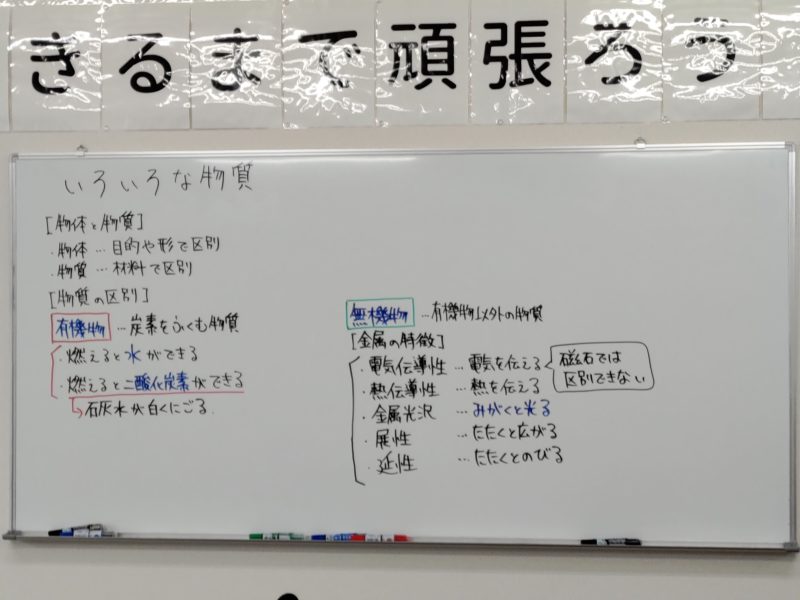 きるまで頑張ろう
いろいろな物質
[物体と物質]
・物体 …目的や形で区別
・物質 …材料で区別
[物質の区別]
有機物 …炭素をふくむ物質
・燃えると水ができる
・燃えると二酸化炭素ができる
↳石灰水が白くにごる.
無機物 …有機物以外の物質
[金属の特徴]
・電気伝導性 …電気を伝える
磁石では
区別できない
・熱伝導性 …熱を伝える
・金属光沢 …みがくと光る
・展性 …たたくと広がる
・延性 …たたくとのびる